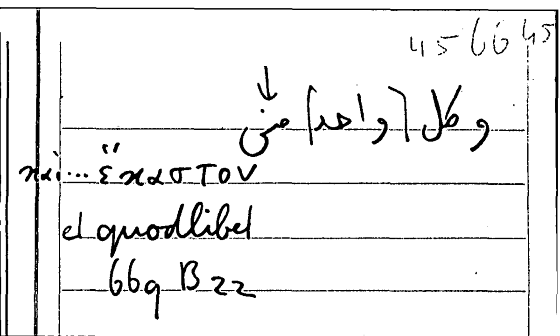 45 66 45
وكل [واحد] من
καὶ... ἕκαστον
et quodlibet
669 B 22